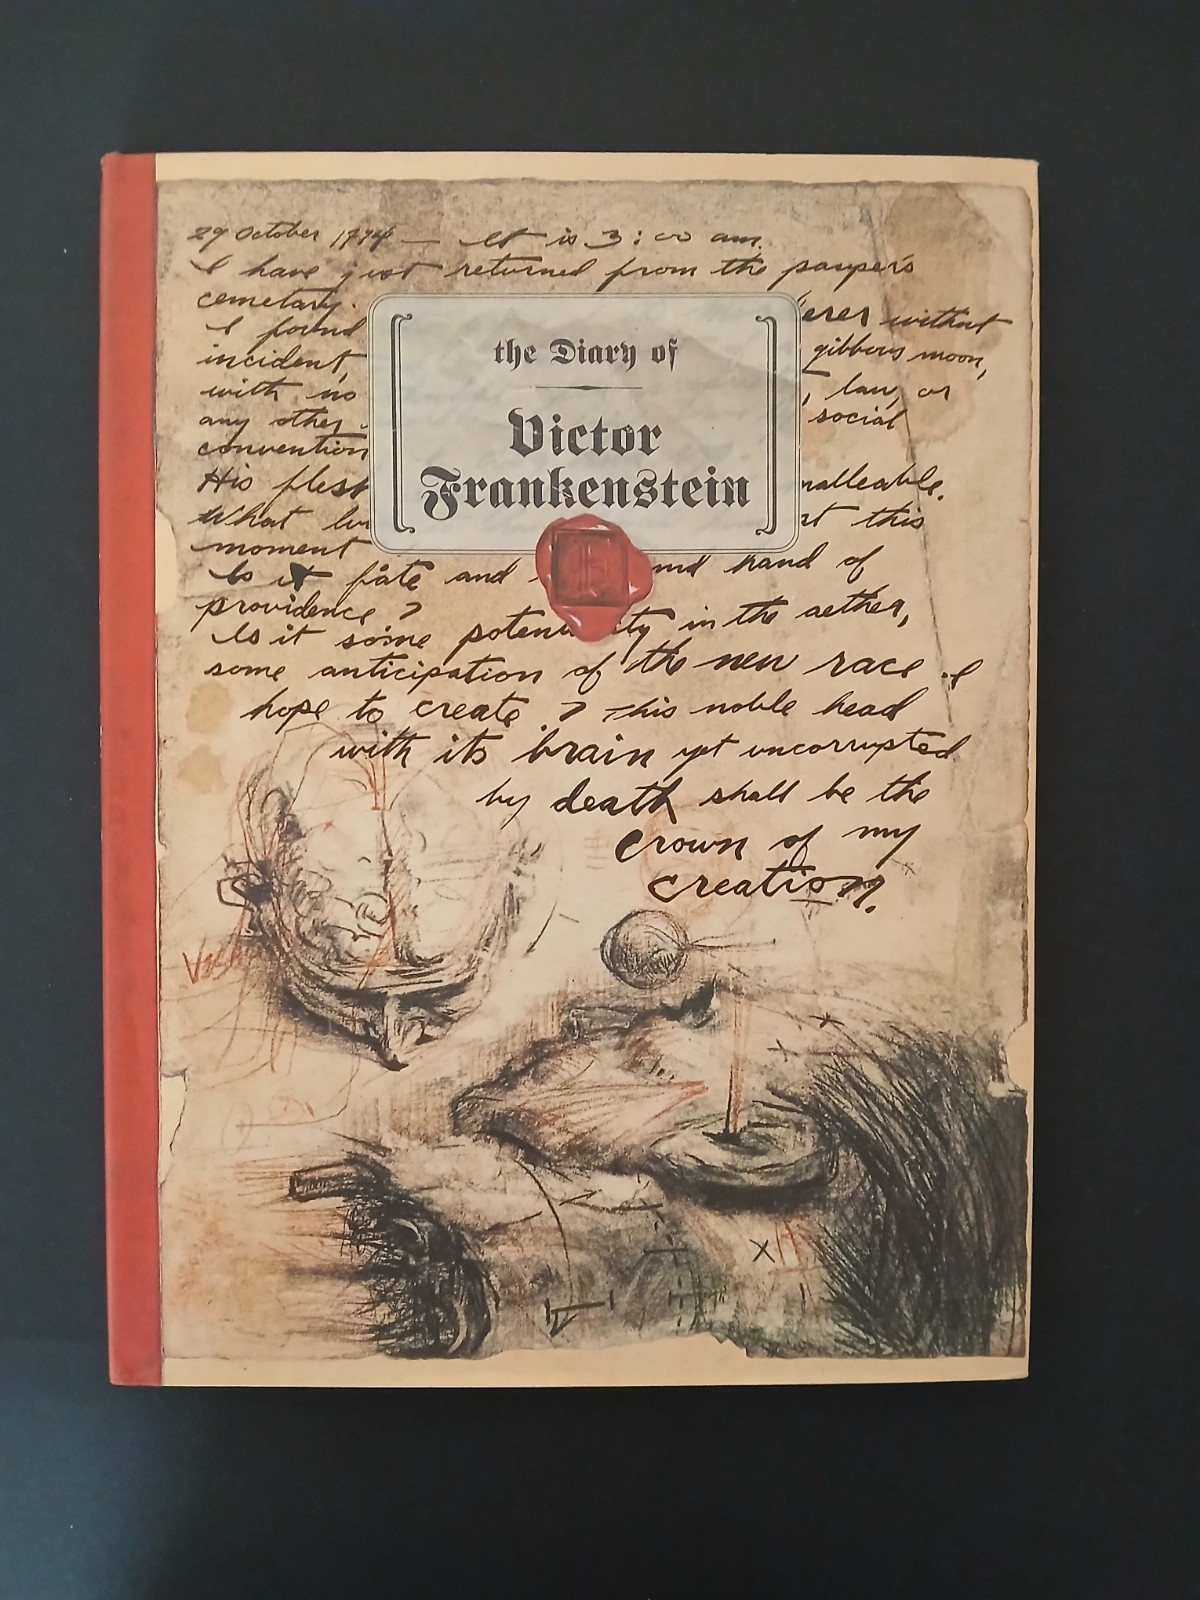 29 October 1794 — It is 3:00 am.
I have just returned from the pauper's
cemetary.
I found erer without
incident, gibbous moon,
with no , law, or
any other social
convention
His flesh malleable.
What this
moment
Is it fate and hand of
providence?
Is it some in the aether,
some anticipation of the new race I
hope to create? This noble head
with its brain yet uncorrupted
by death shall be the
crown of my
creation.
the Diary of
Victor
Frankenstein
F
X